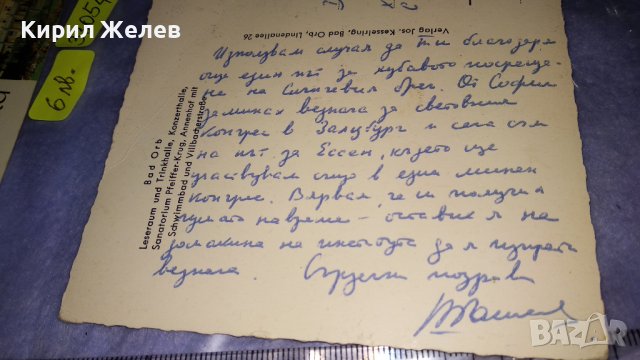 Кирил Желев
6 лв.
Verlag Jos. Kesselring, Bad Orb, Lindenallee 26
Bad Orb
Leseraum und Trinkhalle, Konzerthalle,
Sanatorium Pfeiffer-Krug, Annenhof mit
Schwimmbad und Villbacherstraße
Използвам случая да ти благодаря
още един път за хубавото посреща-
не на Слънчевия бряг. От София
заминах веднага за световния
конгрес в Залцбург и сега съм
на път за Есен, където ще
участвувам също в един
конгрес. Вярвам, че си получил
навреме – оставих я на
домакина на института да я изпрати
веднага. Сърдечни поздрави
bazar.bg